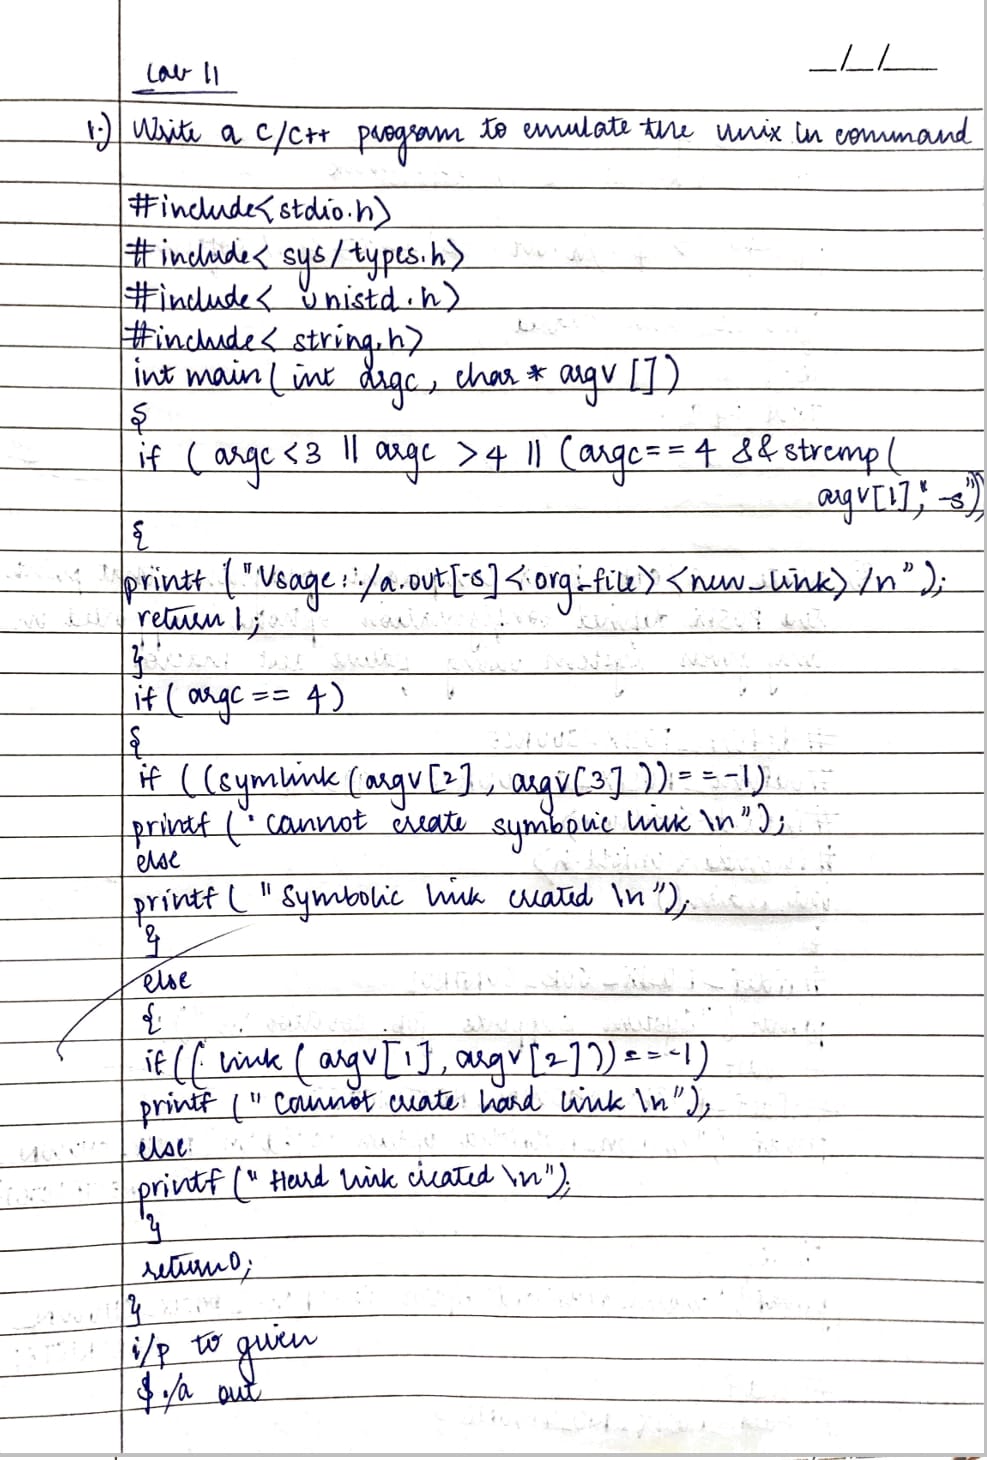 Lab 11
_/_/_
1.) Write a C/C++ program to emulate the unix ln command
#include<stdio.h>
#include< sys/types.h>
#include< unistd.h>
#include< string.h>
int main( int argc, char * argv [])
{
if ( argc <3 || argc >4 || (argc== 4 && strcmp(
argv[1],"-s"))
{
printf ("Usage: ./a.out[-s]<org_file> <new_link> /n");
return 1;
}
if( argc == 4)
{
if ((symlink (argv[2], argv[3] ))==-1)
printf (" cannot create symbolic link \n");
else
printf ( " Symbolic link created \n");
}
else
{
if (( link ( argv[1], argv[2]))==-1)
printf (" Cannot create hard link \n");
else
printf (" Hard link created \n");
}
return 0;
}
i/p to given
$ ./a out